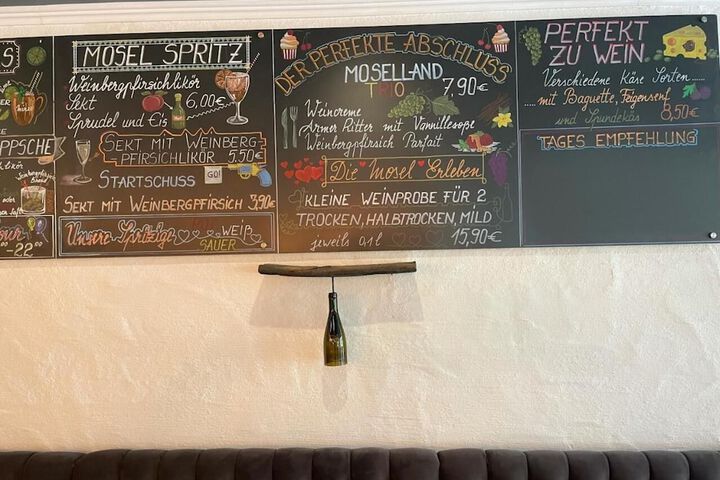 S
PPSCHE
-22
MOSEL SPRITZ
Weinbergpfirsichlikör
Sekt 6,00€
Sprudel und Eis
SEKT MIT WEINBERG
PFIRSICHLIKÖR 5,50€
STARTSCHUSS GO!
SEKT MIT WEINBERGPFIRSICH 3,90€
Unsere Spritzige WEIß
SAUER
DER PERFEKTE ABSCHLUSS
MOSELLAND
TRIO 7,90€
Weincreme
Armer Ritter mit Vanillesoße
Weinbergpfirsich Parfait
Die Mosel Erleben
KLEINE WEINPROBE FÜR 2
TROCKEN, HALBTROCKEN, MILD
jeweils 0,1 l 15,90€
PERFEKT
ZU WEIN
Verschiedene Käse Sorten.....
....mit Baguette, Feigensenf
und Spundekäs 8,50€
TAGES EMPFEHLUNG